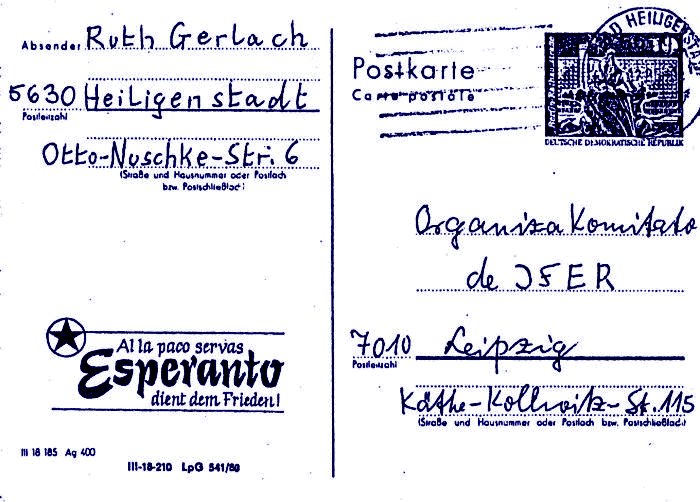 Absender Ruth Gerlach
5630 Heiligenstadt
Postleitzahl
Otto-Nuschke-Str. 6
(Straße und Hausnummer oder Postfach
bzw. Postschließfach)
Al la paco servas
Esperanto
dient dem Frieden!
III 18 185 Ag 400
III-18-210 LpG 541/80
Postkarte
Carte postale
HEILIGENSTADT
DEUTSCHE DEMOKRATISCHE REPUBLIK
Organiza Komitato
de IFER
7010 Leipzig
Postleitzahl
Käthe-Kollwitz-St. 115
(Straße und Hausnummer oder Postfach bzw. Postschließfach)